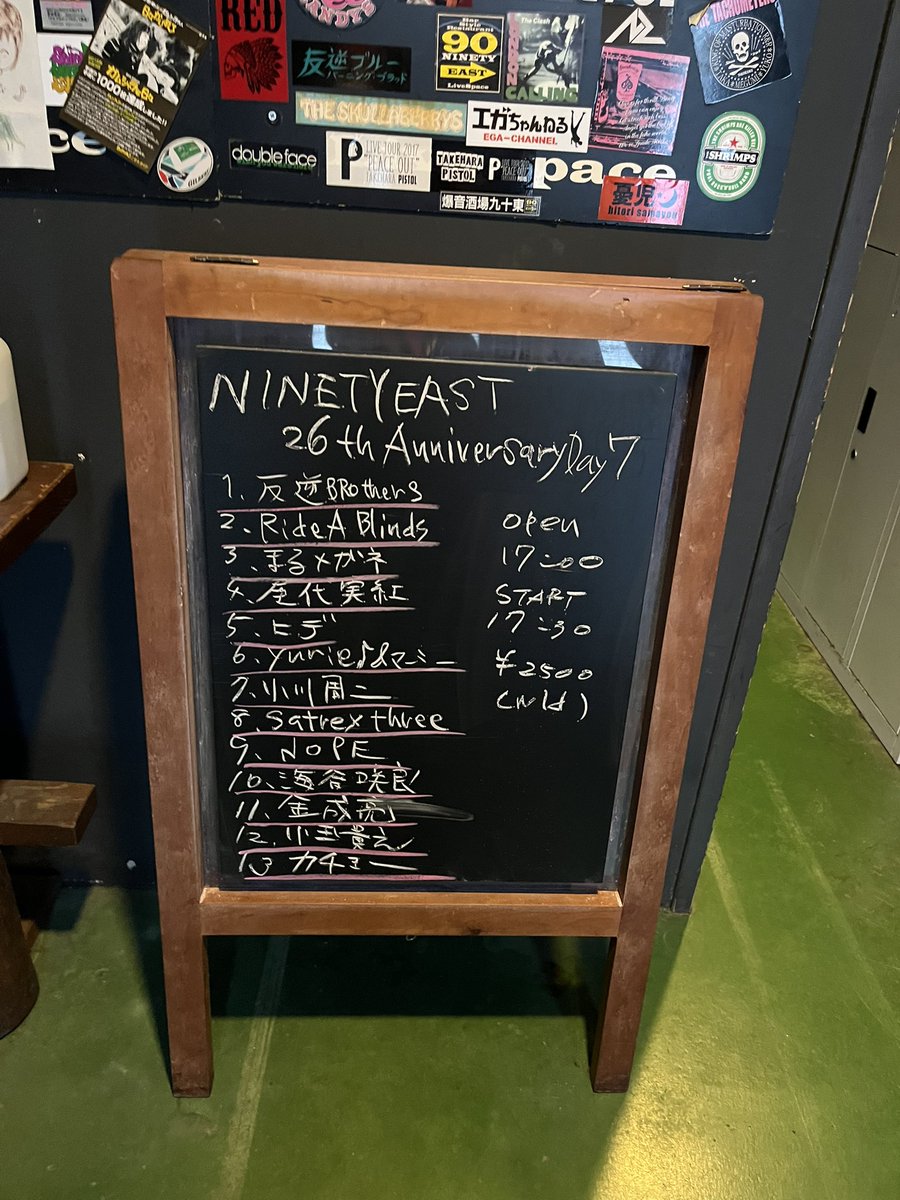 RED
反逆ブルー
バーニング・ブラッド
Bar Style
Restaurant
90
NINETY
EAST
LiveSpace
The Clash
CALLING
THE SKULLABERRYS
エガちゃんねる
EGA-CHANNEL
THE SHRIMPS
doubleface
P LIVE TOUR 2017
"PEACE OUT"
TAKEHARA PISTOL
TAKEHARA
PISTOL
pace
憂児
hitori samayou
爆音酒場九十東
NINETY EAST
26th Anniversary Day 7
1、反逆BRothers
2、Ride A Blinds
3、まるメガネ
4、屋代実紅
5、ヒデ
6、yurie♪&マーミー
7、小川周二
8、Satrex three
9、NOPE
10、海谷咲良
11、金成亮
12、小玉貴之
13 カチョー
open
17:00
START
17:30
¥2500
(w1d)